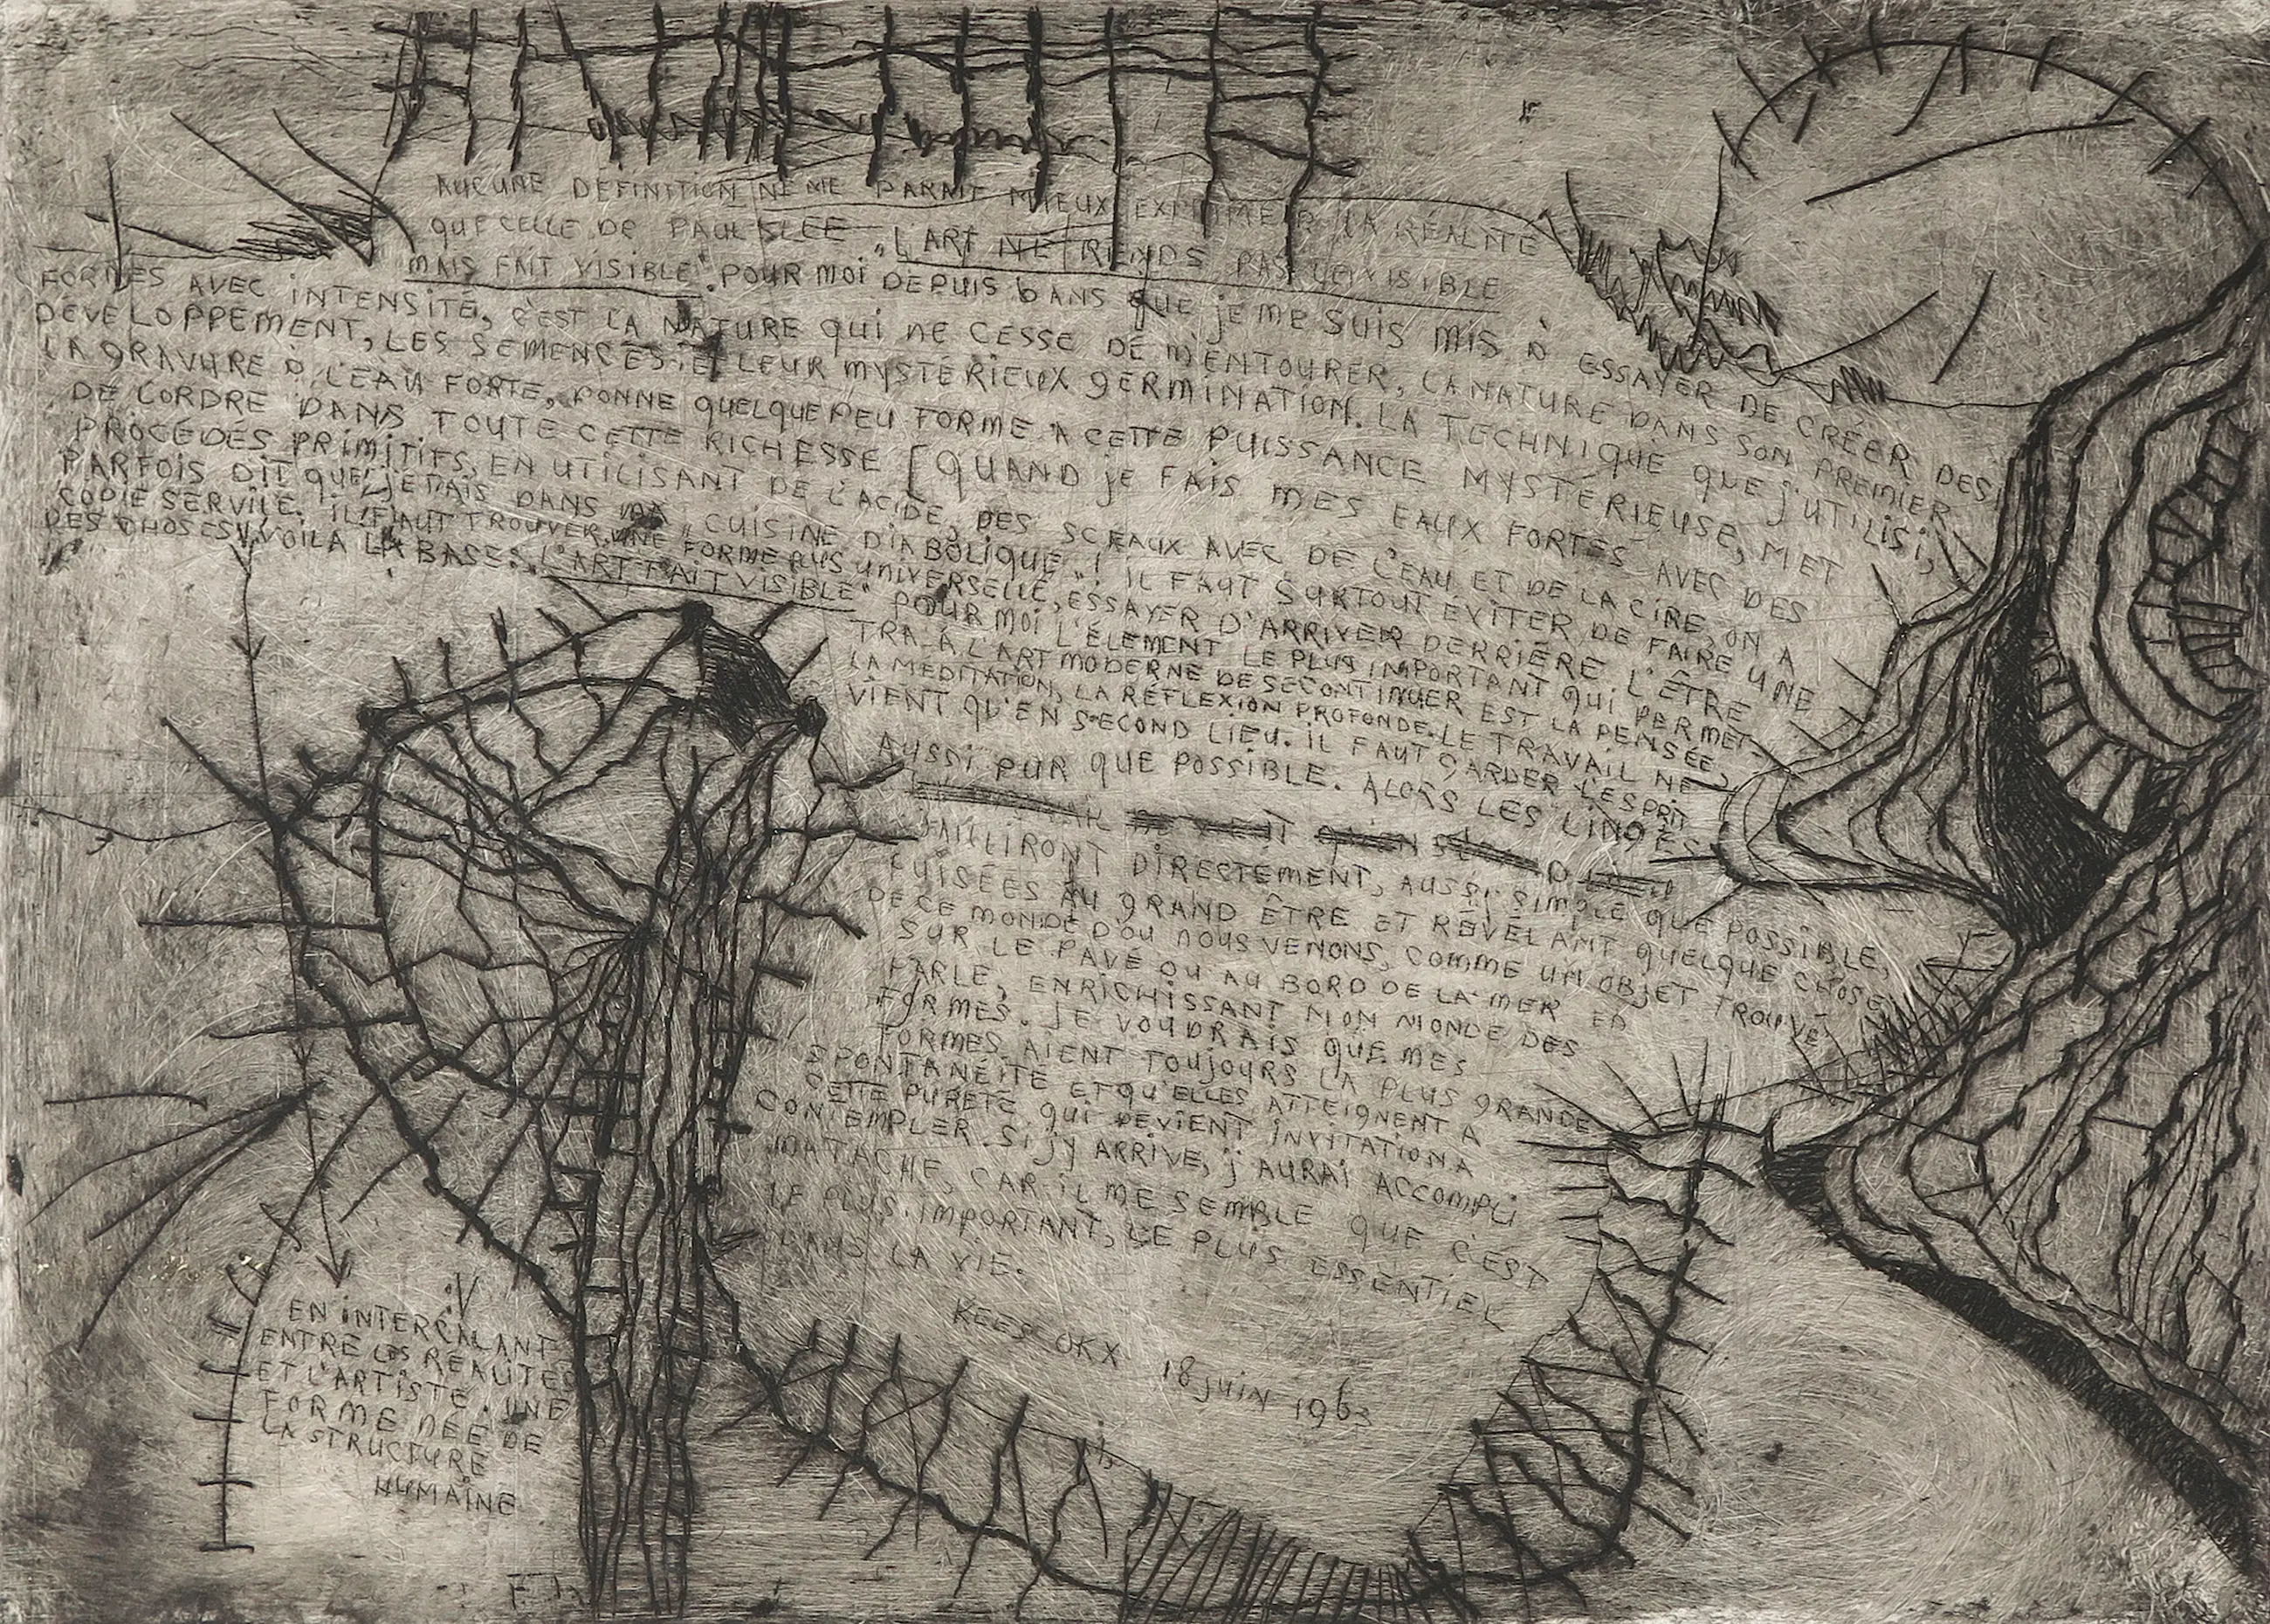 AUCUNE DEFINITION NE ME PARAIT MIEUX EXPRIMER LA RÉALITÉ
QUE CELLE DE PAUL KLEE „L'ART NE RENDS PAS LE VISIBLE
MAIS FAIT VISIBLE". POUR MOI DEPUIS 6 ANS QUE JE ME SUIS MIS À ESSAYER DE CRÉER DES
FORMES AVEC INTENSITÉ, C'EST LA NATURE QUI NE CESSE DE M'ENTOURER, LA NATURE DANS SON PREMIER
DÉVELOPPEMENT, LES SEMENCES ET LEUR MYSTÉRIEUX GERMINATION. LA TECHNIQUE QUE J'UTILISI,
LA GRAVURE À L'EAU FORTE, DONNE QUELQUE PEU FORME À CETTE PUISSANCE MYSTÉRIEUSE, MET
DE L'ORDRE DANS TOUTE CETTE RICHESSE [QUAND JE FAIS MES EAUX FORTES AVEC DES
PROCÉDÉS PRIMITIFS, EN UTILISANT DE L'ACIDE, DES SCEAUX AVEC DE L'EAU ET DE LA CIRE, ON A
PARFOIS DIT QUE J'ETAIS DANS MA „CUISINE DIABOLIQUE"! IL FAUT SURTOUT ÉVITER DE FAIRE UNE
COPIE SERVILE. IL FAUT TROUVER UNE FORME PLUS UNIVERSELLE, ESSAYER D'ARRIVER DERRIÈRE L'ÊTRE
DES CHOSES. VOILA LA BASE: „L'ART FAIT VISIBLE" POUR MOI L'ÉLÉMENT LE PLUS IMPORTANT QUI PERMET-
TRA À L'ART MODERNE DE SE CONTINUER EST LA PENSÉE,
LA MEDITATION, LA RÉFLEXION PROFONDE. LE TRAVAIL NE
VIENT QU'EN SECOND LIEU. IL FAUT GARDER L'ESPRIT
AUSSI PUR QUE POSSIBLE. ALORS LES LINGES
JAILLIRONT DIRECTEMENT, AUSSI SIMPLE QUE POSSIBLE,
PUISÉES AU GRAND ÊTRE ET RÉVÉLANT QUELQUE CHOSE
DE CE MONDE D'OU NOUS VENONS, COMME UN OBJET TROUVÉ
SUR LE PAVÉ OU AU BORD DE LA MER
PARLE, ENRICHISSANT MON MONDE DES
FORMES. JE VOUDRAIS QUE MES
FORMES AIENT TOUJOURS LA PLUS GRANDE
SPONTANÉITÉ ET QU'ELLES ATTEIGNENT A
CETTE PURETÉ QUI DEVIENT INVITATION A
CONTEMPLER. SI J'Y ARRIVE, J'AURAI ACCOMPLI
MA TACHE, CAR IL ME SEMBLE QUE C'EST
LE PLUS IMPORTANT, LE PLUS ESSENTIEL
DANS LA VIE.
KEES OKX 18 JUIN 1963
EN INTERCALANT
ENTRE LES RÉALITÉS
ET L'ARTISTE, UNE
FORME NÉE DE
LA STRUCTURE
HUMAINE